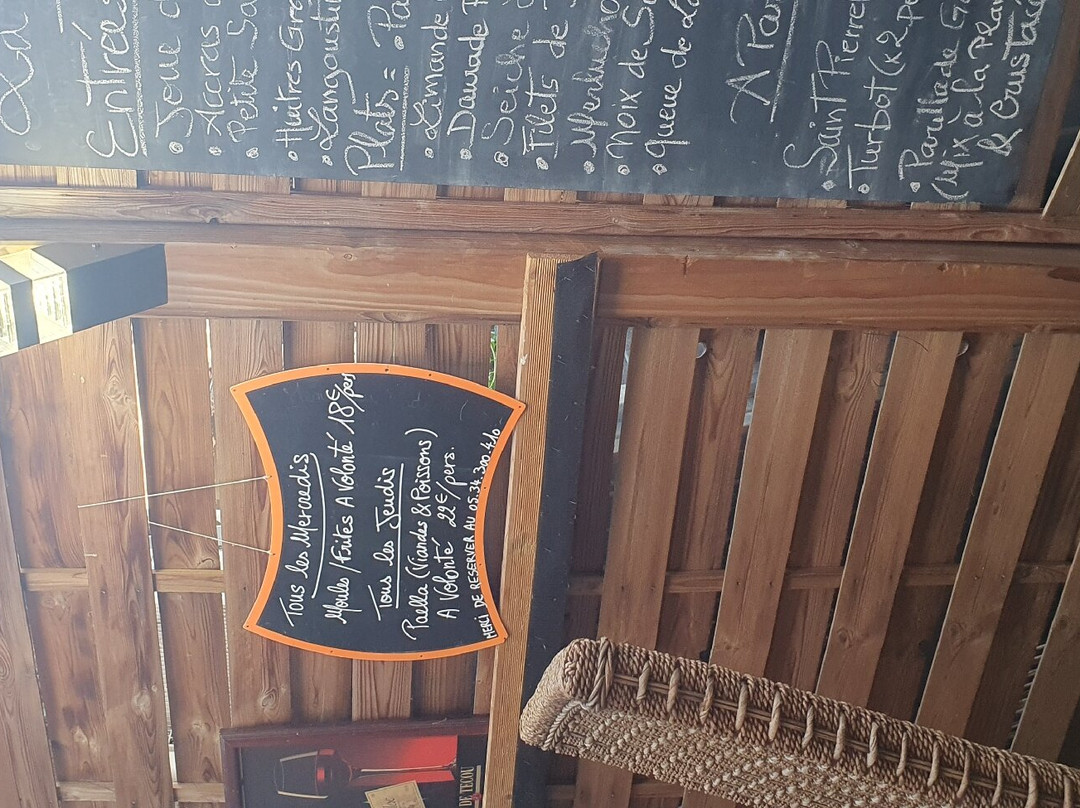 La
Entrées
• Joue d
• Accras
• Petite Sa
• Huîtres Gra
• Langousti
Plats =
• Limande
• Daurade
• Seiche
• Filets de
• Merluch
• Noix de S
• queue de Lo
A Par
• Saint Pierre
• Turbot (x2 pe
• Parillade G
(Mix à la Plan
& Crustac
Tous les Mercredis
Moules / Frites A Volonté 18€/pers
Tous les Jeudis
Paella (Viandes & Poissons)
A Volonté 22€/pers.
MERCI DE RESERVER AU 05.34.300.410
DE TECOU